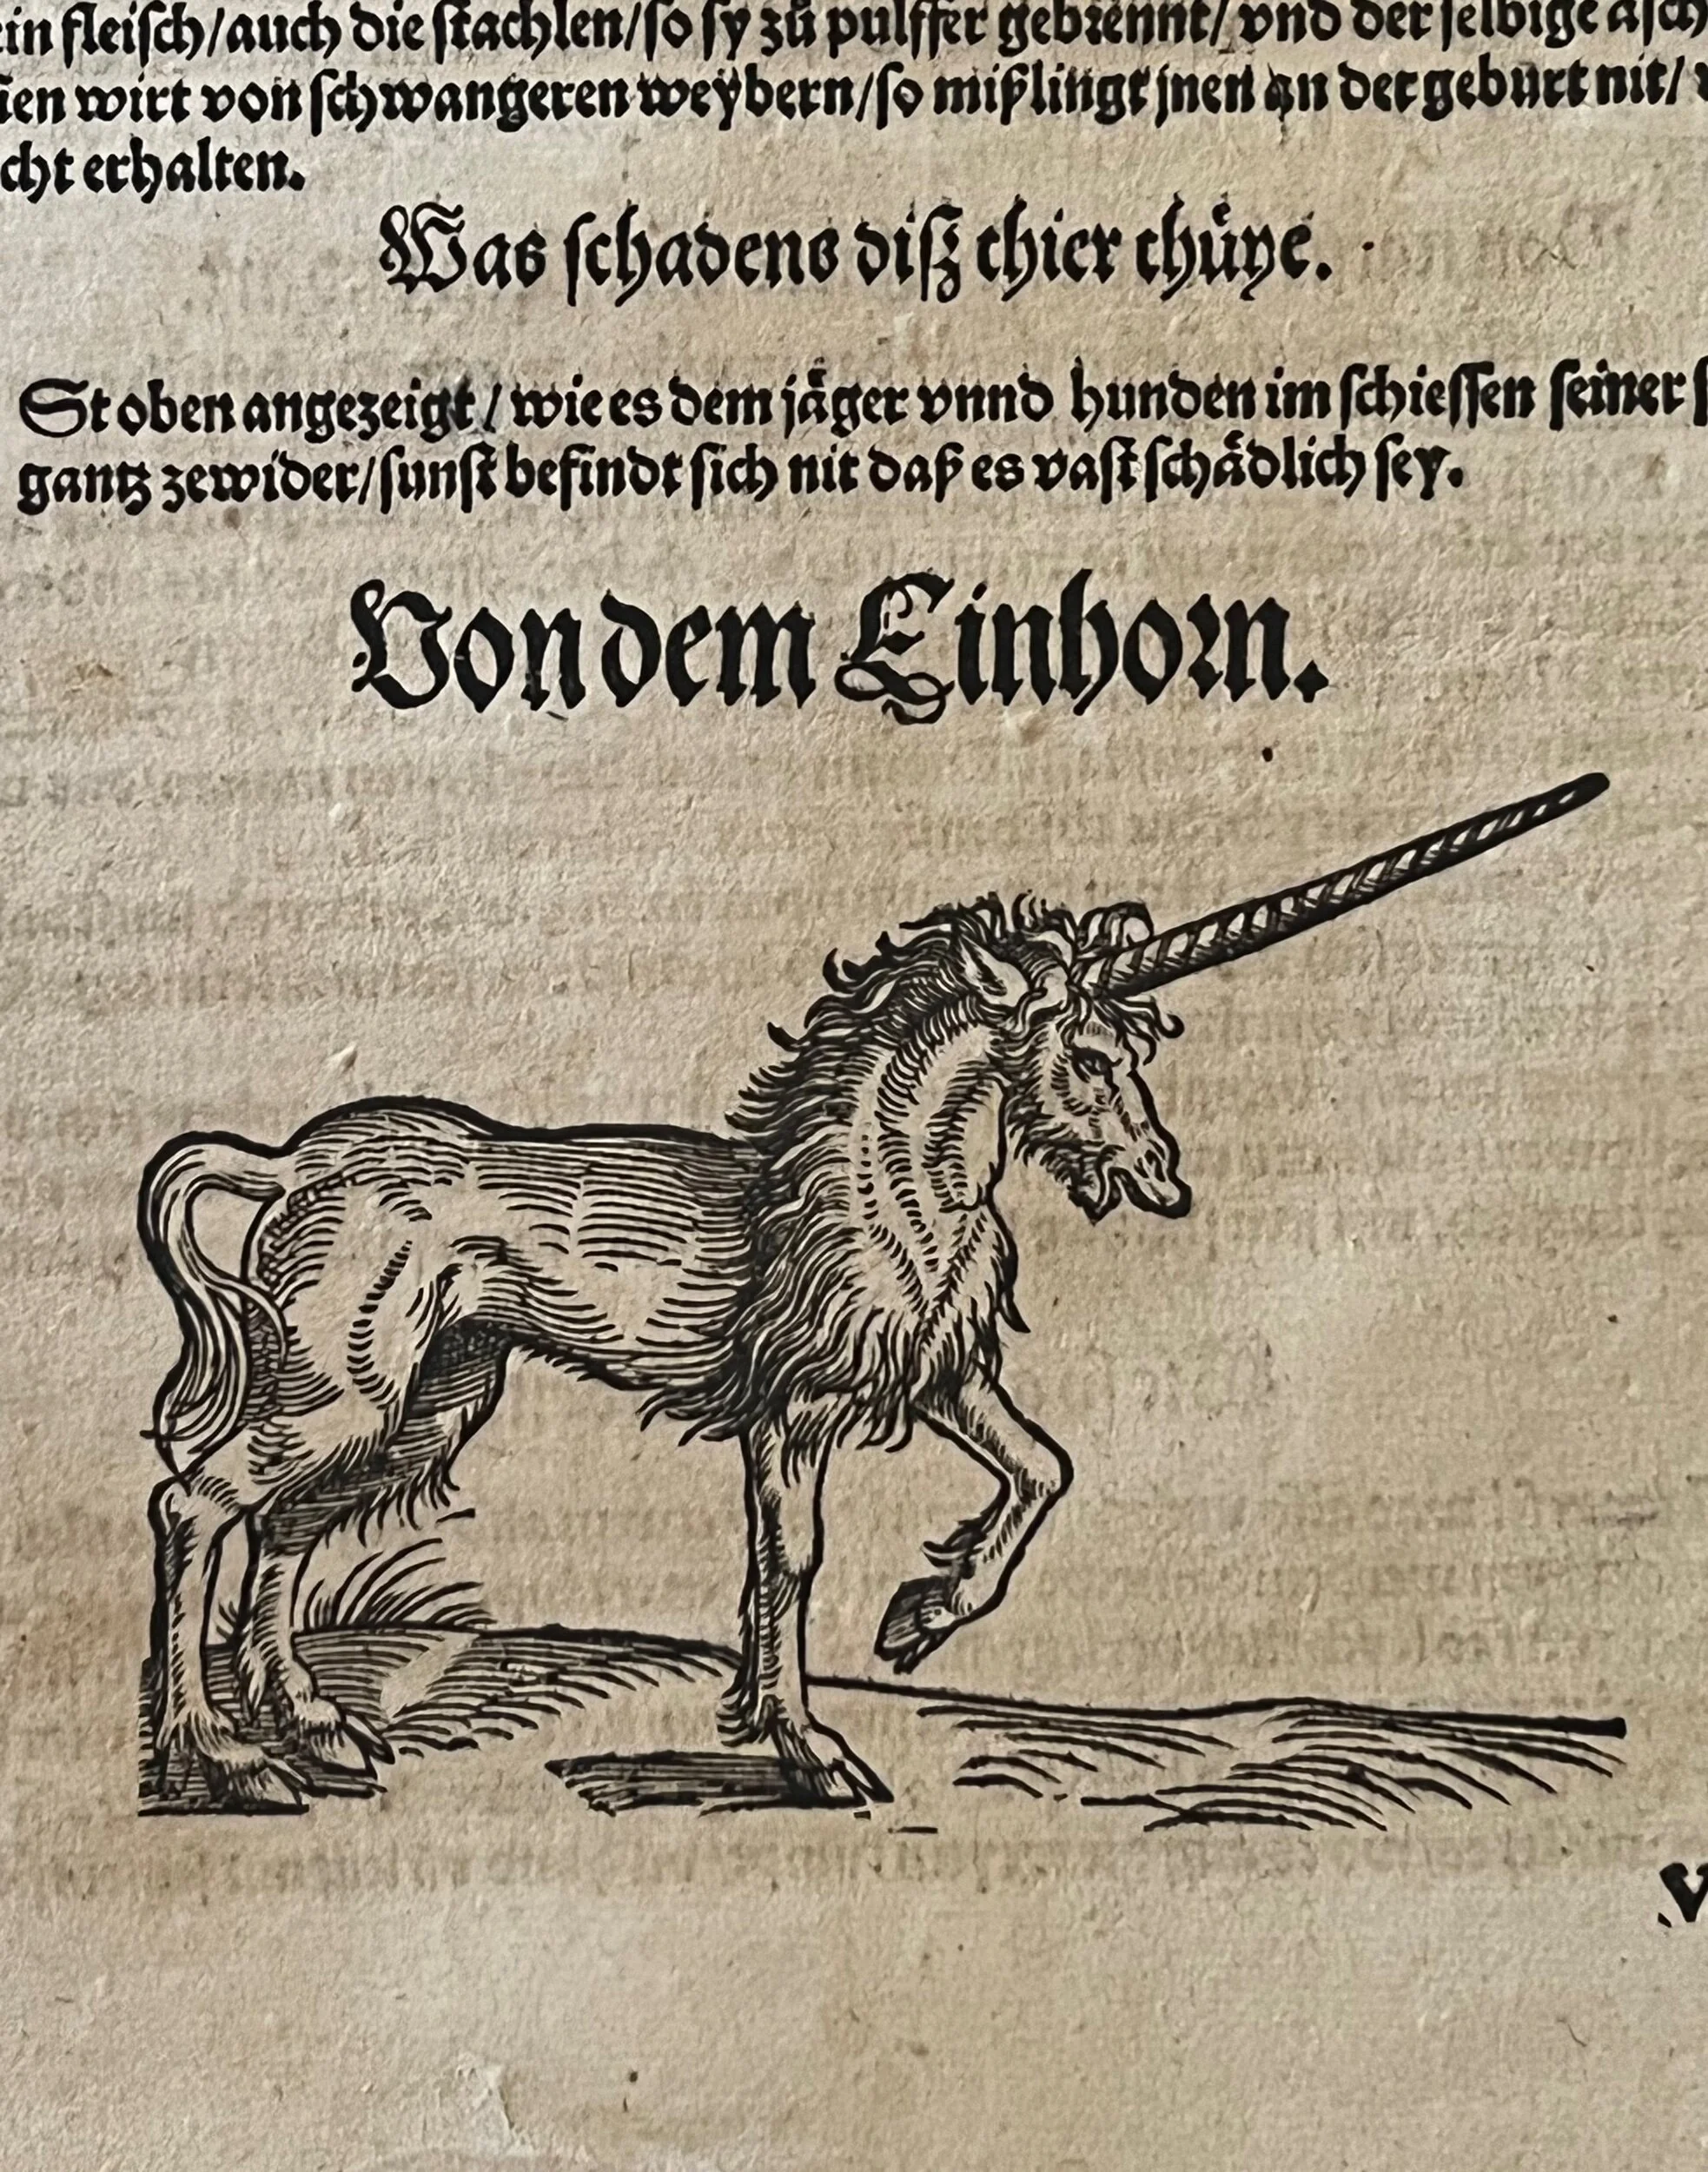 in fleisch/auch die stachlen/so sy zů pulffer gebrennt/ vnd der selbige äsch
en wirt von schwangeren weÿbern/so mißlingt jnen an der geburt nit/
cht erhalten.
Was schadens diß thier thůye.
St oben angezeigt/ wie es dem jäger vnnd hunden im schiessen seiner
gantz zewider/sunst befindt sich nit daß es vast schädlich sey.
Von dem Einhorn.
V